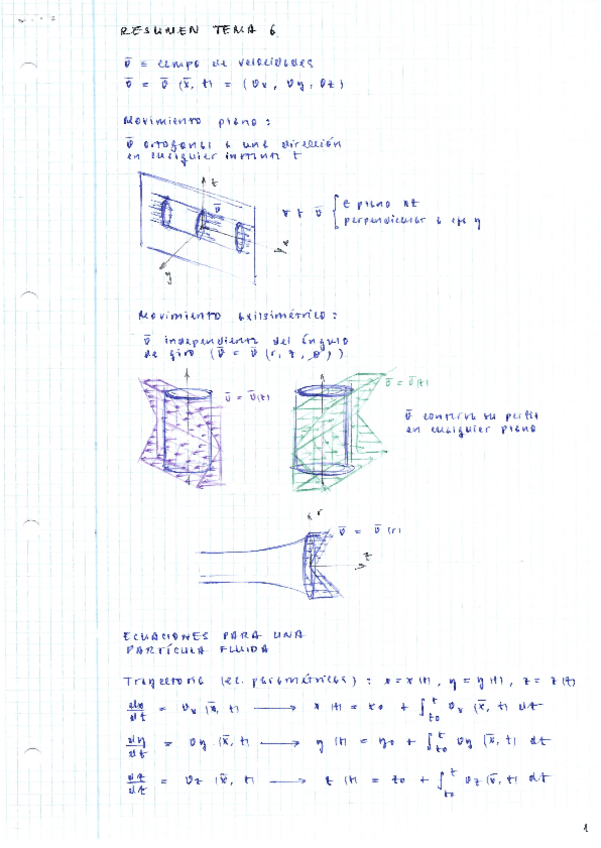 RESUMEN TEMA 6
v̄ ≡ campo de velocidades
v̄ = v̄ (x̄, t) = (vx, vy, vz)
Movimiento plano:
v̄ ortogonal a una dirección
en cualquier instante t
z
v̄
v̄ { ∈ plano xz
perpendicular a eje y
x
y
Movimiento axilsimétrico:
v̄ independiente del ángulo
de giro (v̄ = v̄ (r, z, θ))
v̄ = v̄(z)
v̄ = v̄(z)
v̄ conserva su perfil
en cualquier plano
r
v̄ = v̄ (r)
z
ECUACIONES PARA UNA
PARTÍCULA FLUIDA
Trayectoria (ec. paramétricas): x = x(t), y = y(t), z = z(t)
dx/dt = vx (x̄, t) ⟶ x(t) = x0 + ∫t0^t vx (x̄, t) dt
dy/dt = vy (x̄, t) ⟶ y(t) = y0 + ∫t0^t vy (x̄, t) dt
dz/dt = vz (x̄, t) ⟶ z(t) = z0 + ∫t0^t vz (x̄, t) dt
1